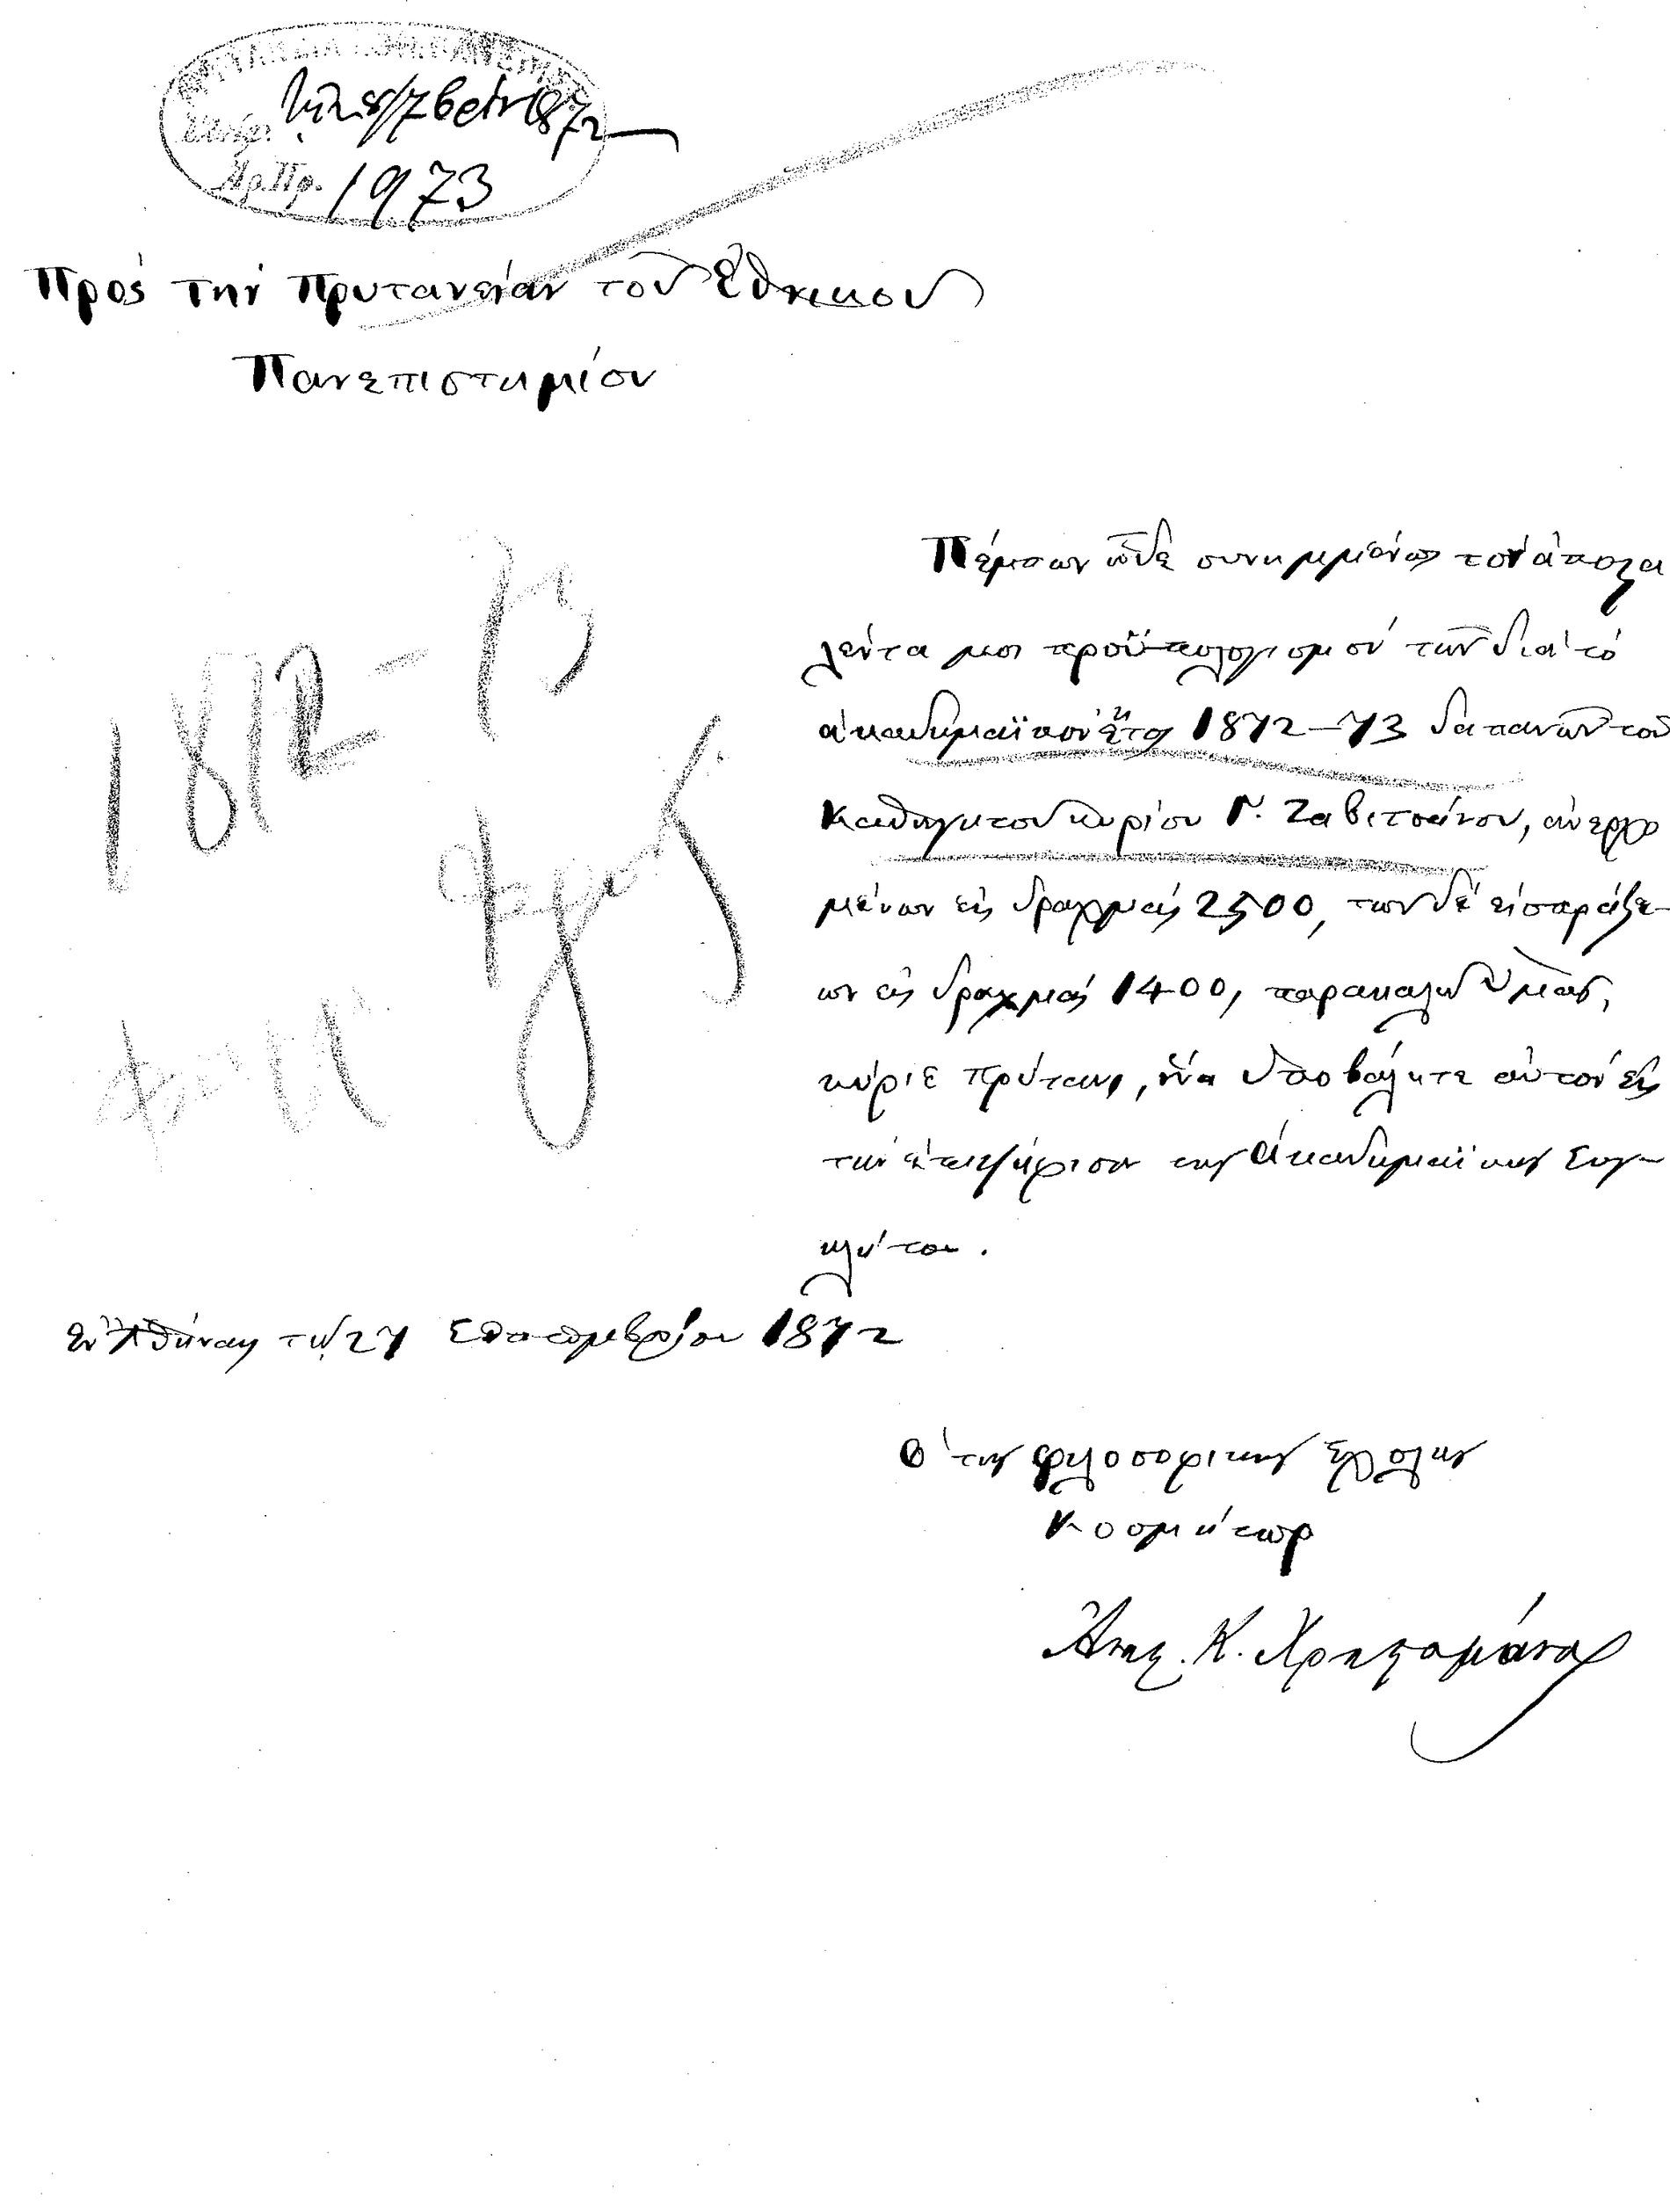 τῇ 28 7βρίου 1872
Ἀρ. Πρ. 1973
Πρὸς τὴν Πρυτανείαν τοῦ Ἐθνικοῦ
Πανεπιστημίου
1872-73
Πέμπων ὧδε συνημμένως τὸν ἀποστα
λέντα μοι προϋπολογισμὸν τῶν διὰ τὸ
ἀκαδημαϊκὸν ἔτος 1872-73 δαπανῶν τοῦ
Καθηγητοῦ κυρίου Γ. Ζαβιτσάνου, ἀνερχο
μένων εἰς δραχμὰς 2500, τῶν δὲ εἰσπράξε-
ων εἰς δραχμὰς 1400, παρακαλῶ ὑμᾶς,
κύριε πρύτανι, ἵνα ὑποβάλητε αὐτὸν εἰς
τὴν ἐπιψήφισιν τῆς Ἀκαδημαϊκῆς Συγ-
κλήτου.
Ἐν Ἀθήναις τῇ 27 Σεπτεμβρίου 1872
Ὁ τῆς φιλοσοφικῆς Σχολῆς
Κοσμήτωρ
Ἀνασ. Κ. Χρηστομάνος